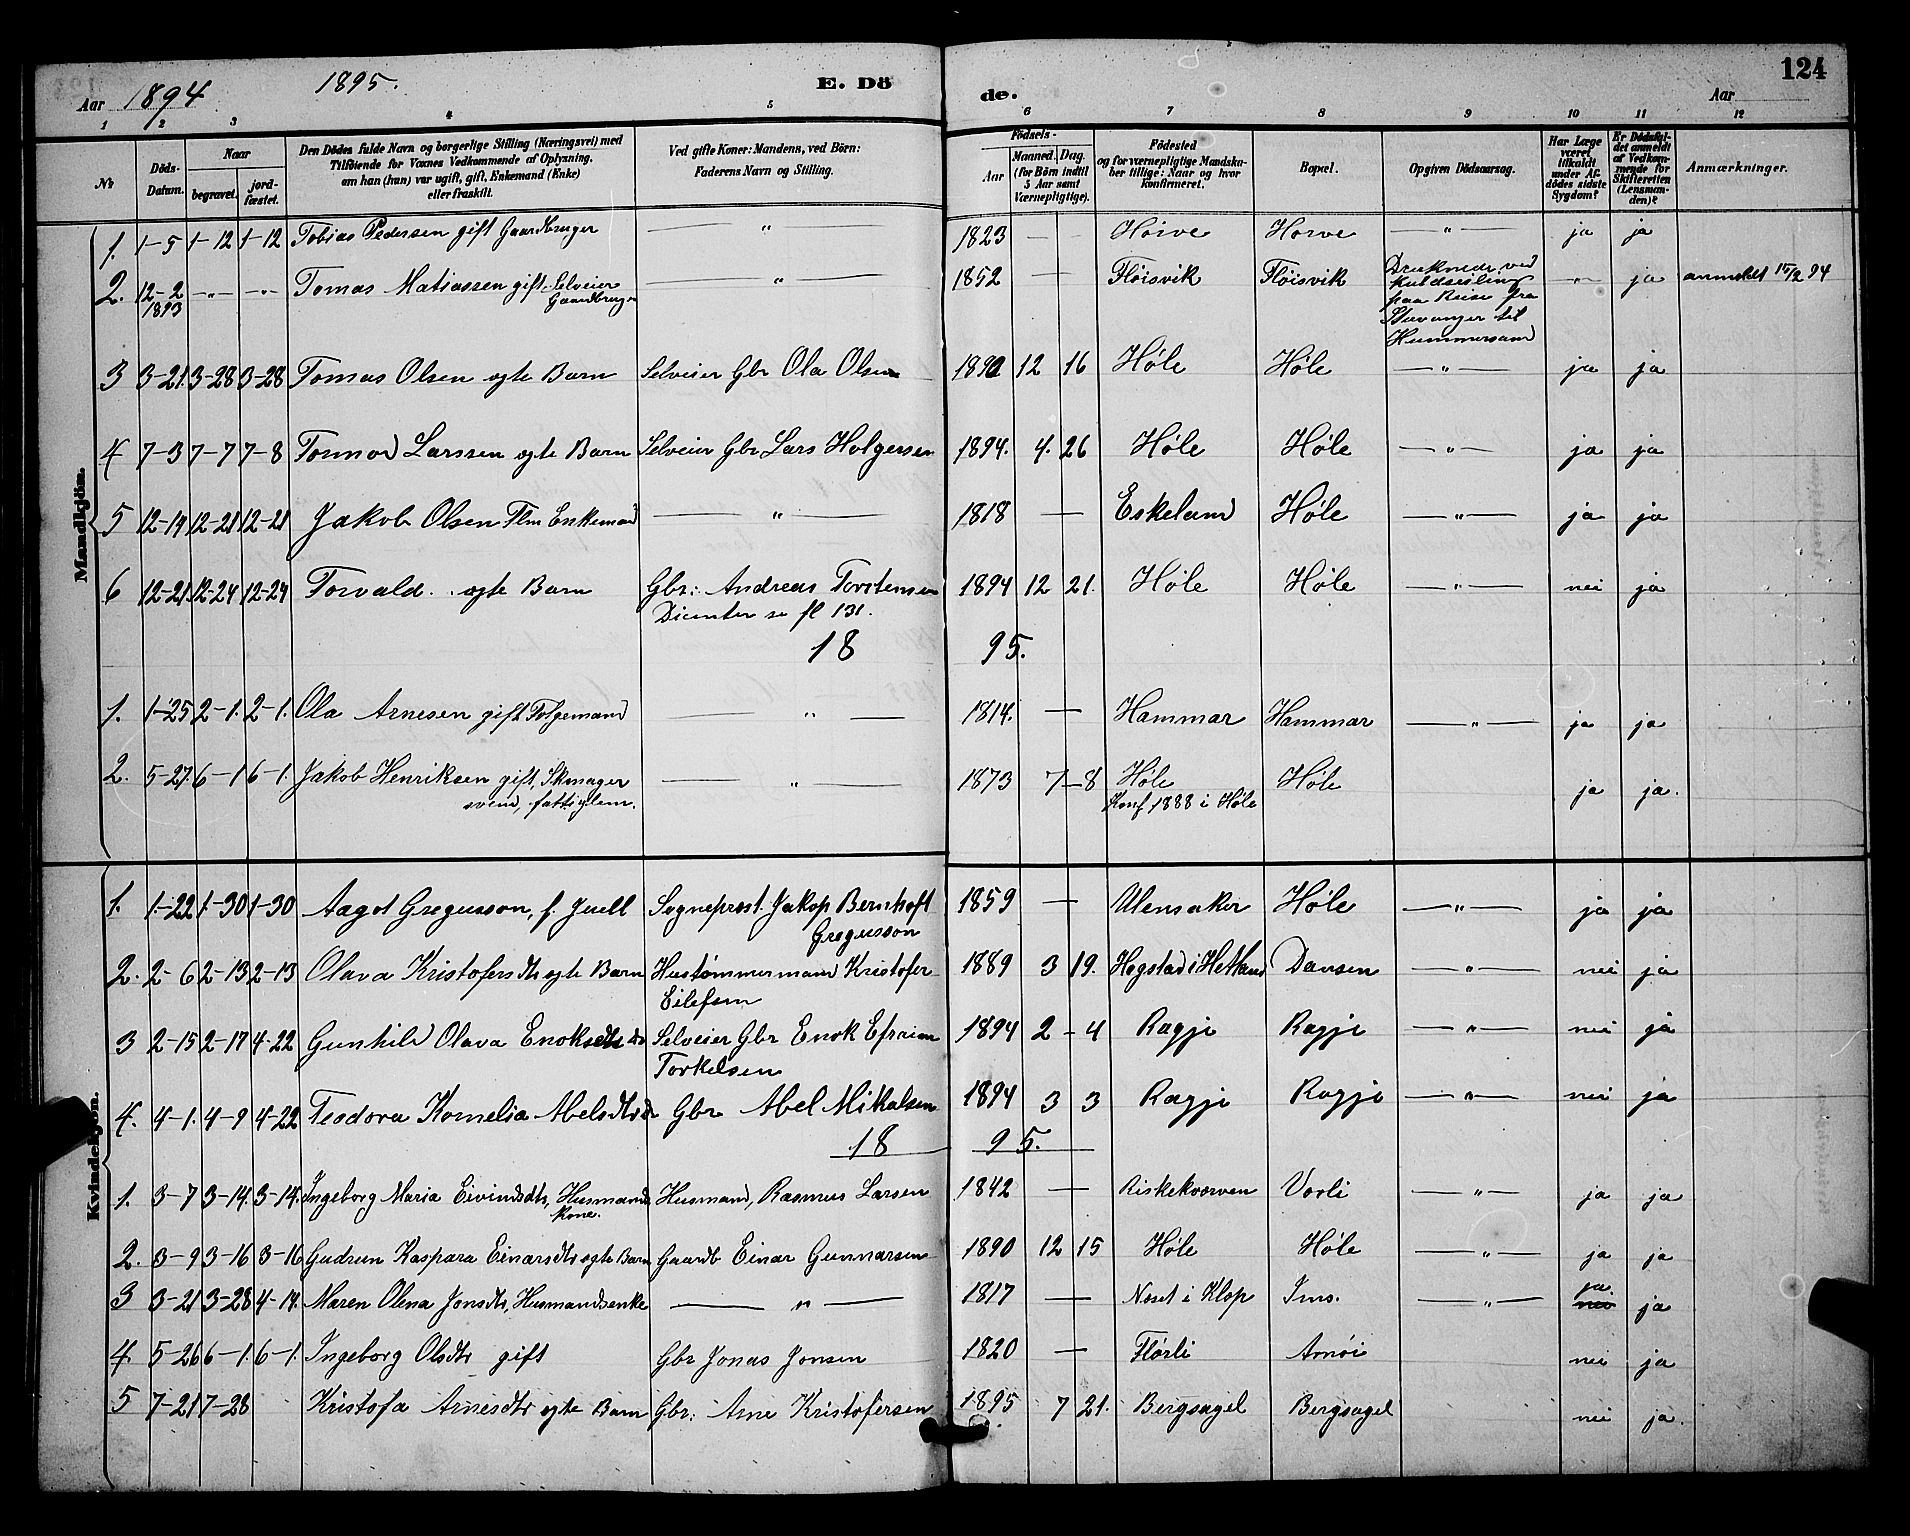 124
Aar 1894 1895. E. Dö de. Aar
1 2 3 4 5 6 7 8 9 10 11 12
№ Döds-Datum. Naar begravet. jordfæstet. Den Dödes fulde Navn og borgerlige Stilling (Næringsvei) med Tilföiende for Voxnes Vedkommende af Oplysning, om han (hun) var ugift, gift, Enkemand (Enke) eller fraskilt. Ved gifte Koner: Mandens, ved Börn: Faderens Navn og Stilling. Födsels- Aar Maaned. Dag. (for Börn indtil 5 Aar samt Værnepligtige). Födested og for værnepligtige Mandskaber tillige: Naar og hvor konfirmeret. Bopæl. Opgiven Dödsaarsag. Har Læge været tilkaldt under Afdödes sidste Sygdom? Er Dödsfaldet anmeldt af Vedkommende for Skifteretten (Lensmanden)? Anmærkninger.
Mandkjön.
1. 1-5 1-12 1-12 Tobias Pedersen gift Gaardbruger — " — 1823 — — Hørve Hørve — " — ja ja
2. 12-2 1893 -"- -"- Tomas Matiassen gift Selveier Gaardbruger — " — 1852 — — Fløisvik Fløisvik Druknede ved Kuldseiling paa Reise fra Stavanger til Hummersand -"- ja anmeldt 15/2 94
3 3-21. 3-28 3-28 Tomas Olsen ægte Barn Selveier Gbr Ola Olsen 1892 12 16 Høle Høle — " — ja ja
4 7-3 7-7 7-8 Tormod Larssen ægte Barn Selveier Gbr Lars Holgersen 1894. 4. 26 Høle Høle — " — ja ja
5 12-19 12-21 12-21 Jakob Olsen Flm Enkemand — " — 1818 — Eskeland Høle — " — ja ja
6 12-21. 12-24 12-24 Torvald. ægte Barn Gbr: Andreas Torstensen 1894 12 21. Høle Høle — " — nei ja
Dissenter se fl 131.
18 95.
1. 1-25 2-1. 2-1. Ola Arnesen gift Folgemand — " — 1814. — Hammar Hammar — " — ja ja
2. 5-27. 6-1 6-1. Jakob Henriksen gift, Skomager svend, fattiglem. — " — 1873 7-8 Høle Konf 1888 i Høle Høle ja ja.
Kvindekjön.
1. 1-22 1-30 1-30 Aagot Gregusson, f. Juell Sogneprest Jakop Bernhoft Gregusson 1859 — Ulensaker Høle — " — ja ja
2. 2-6 2-13 2-13 Olava Kristofersdtr ægte Barn Hustømmermand Kristofer Eilefsen 1889 3 19. Hogstad i Hetland Dansen — " — nei ja
3 2-15 2-17 4-22 Gunhild Olava Enoksdtr do Selveier Gbr Enok Efraim Torkelsen 1894 2-4 Ragje Ragje — " — nei ja
4. 4-1. 4-9 4-22 Teodora Kornelia Abelsdtr do Gbr Abel Mikalsen 1894 3 3 Ragje Ragje — " — nei ja
18 95.
1. 3-7 3-14. 3-14. Ingeborg Maria Eivindsdtr, Husmands Kone. Husmand, Rasmus Larsen 1842 — Riskekværven Vorli — " — ja ja
2. 3-9 3-16 3-16 Gudrun Kaspara Einarsdtr ægte Barn Gaardb Einar Gunnarsen 1890 12 15 Høle Høle — " — ja ja
3 3-21 3-28 4-14. Maren Olena Jonsdtr, Husmandsenke — " — 1817 — Neset i Klep Ims. — " — ja. nei ja
4. 5-26 6-1. 6-1. Ingeborg Olsdtr gift Gbr Jonas Jonsen 1820 — Flørli Arnøi nei ja
5 7-21 7-28 Kristofa Arnesdtr ægte Barn Gbr: Arne Kristofersen 1895 7 21. Bergsagel Bergsagel nei ja.